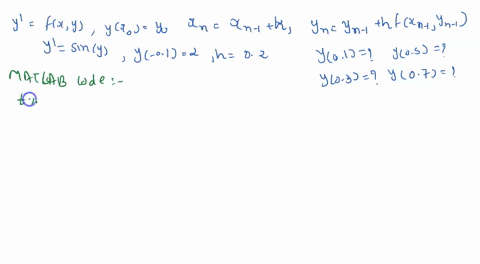 y' = f(x,y) , y(x₀) = y₀  xₙ = xₙ₋₁ + h,  yₙ = yₙ₋₁ + h f(xₙ₋₁, yₙ₋₁)
y' = sin(y) , y(-0.1) = 2 , h = 0.2  y(0.1) = ?  y(0.5) = ?
MATLAB Code :-  y(0.3) = ?  y(0.7) = ?